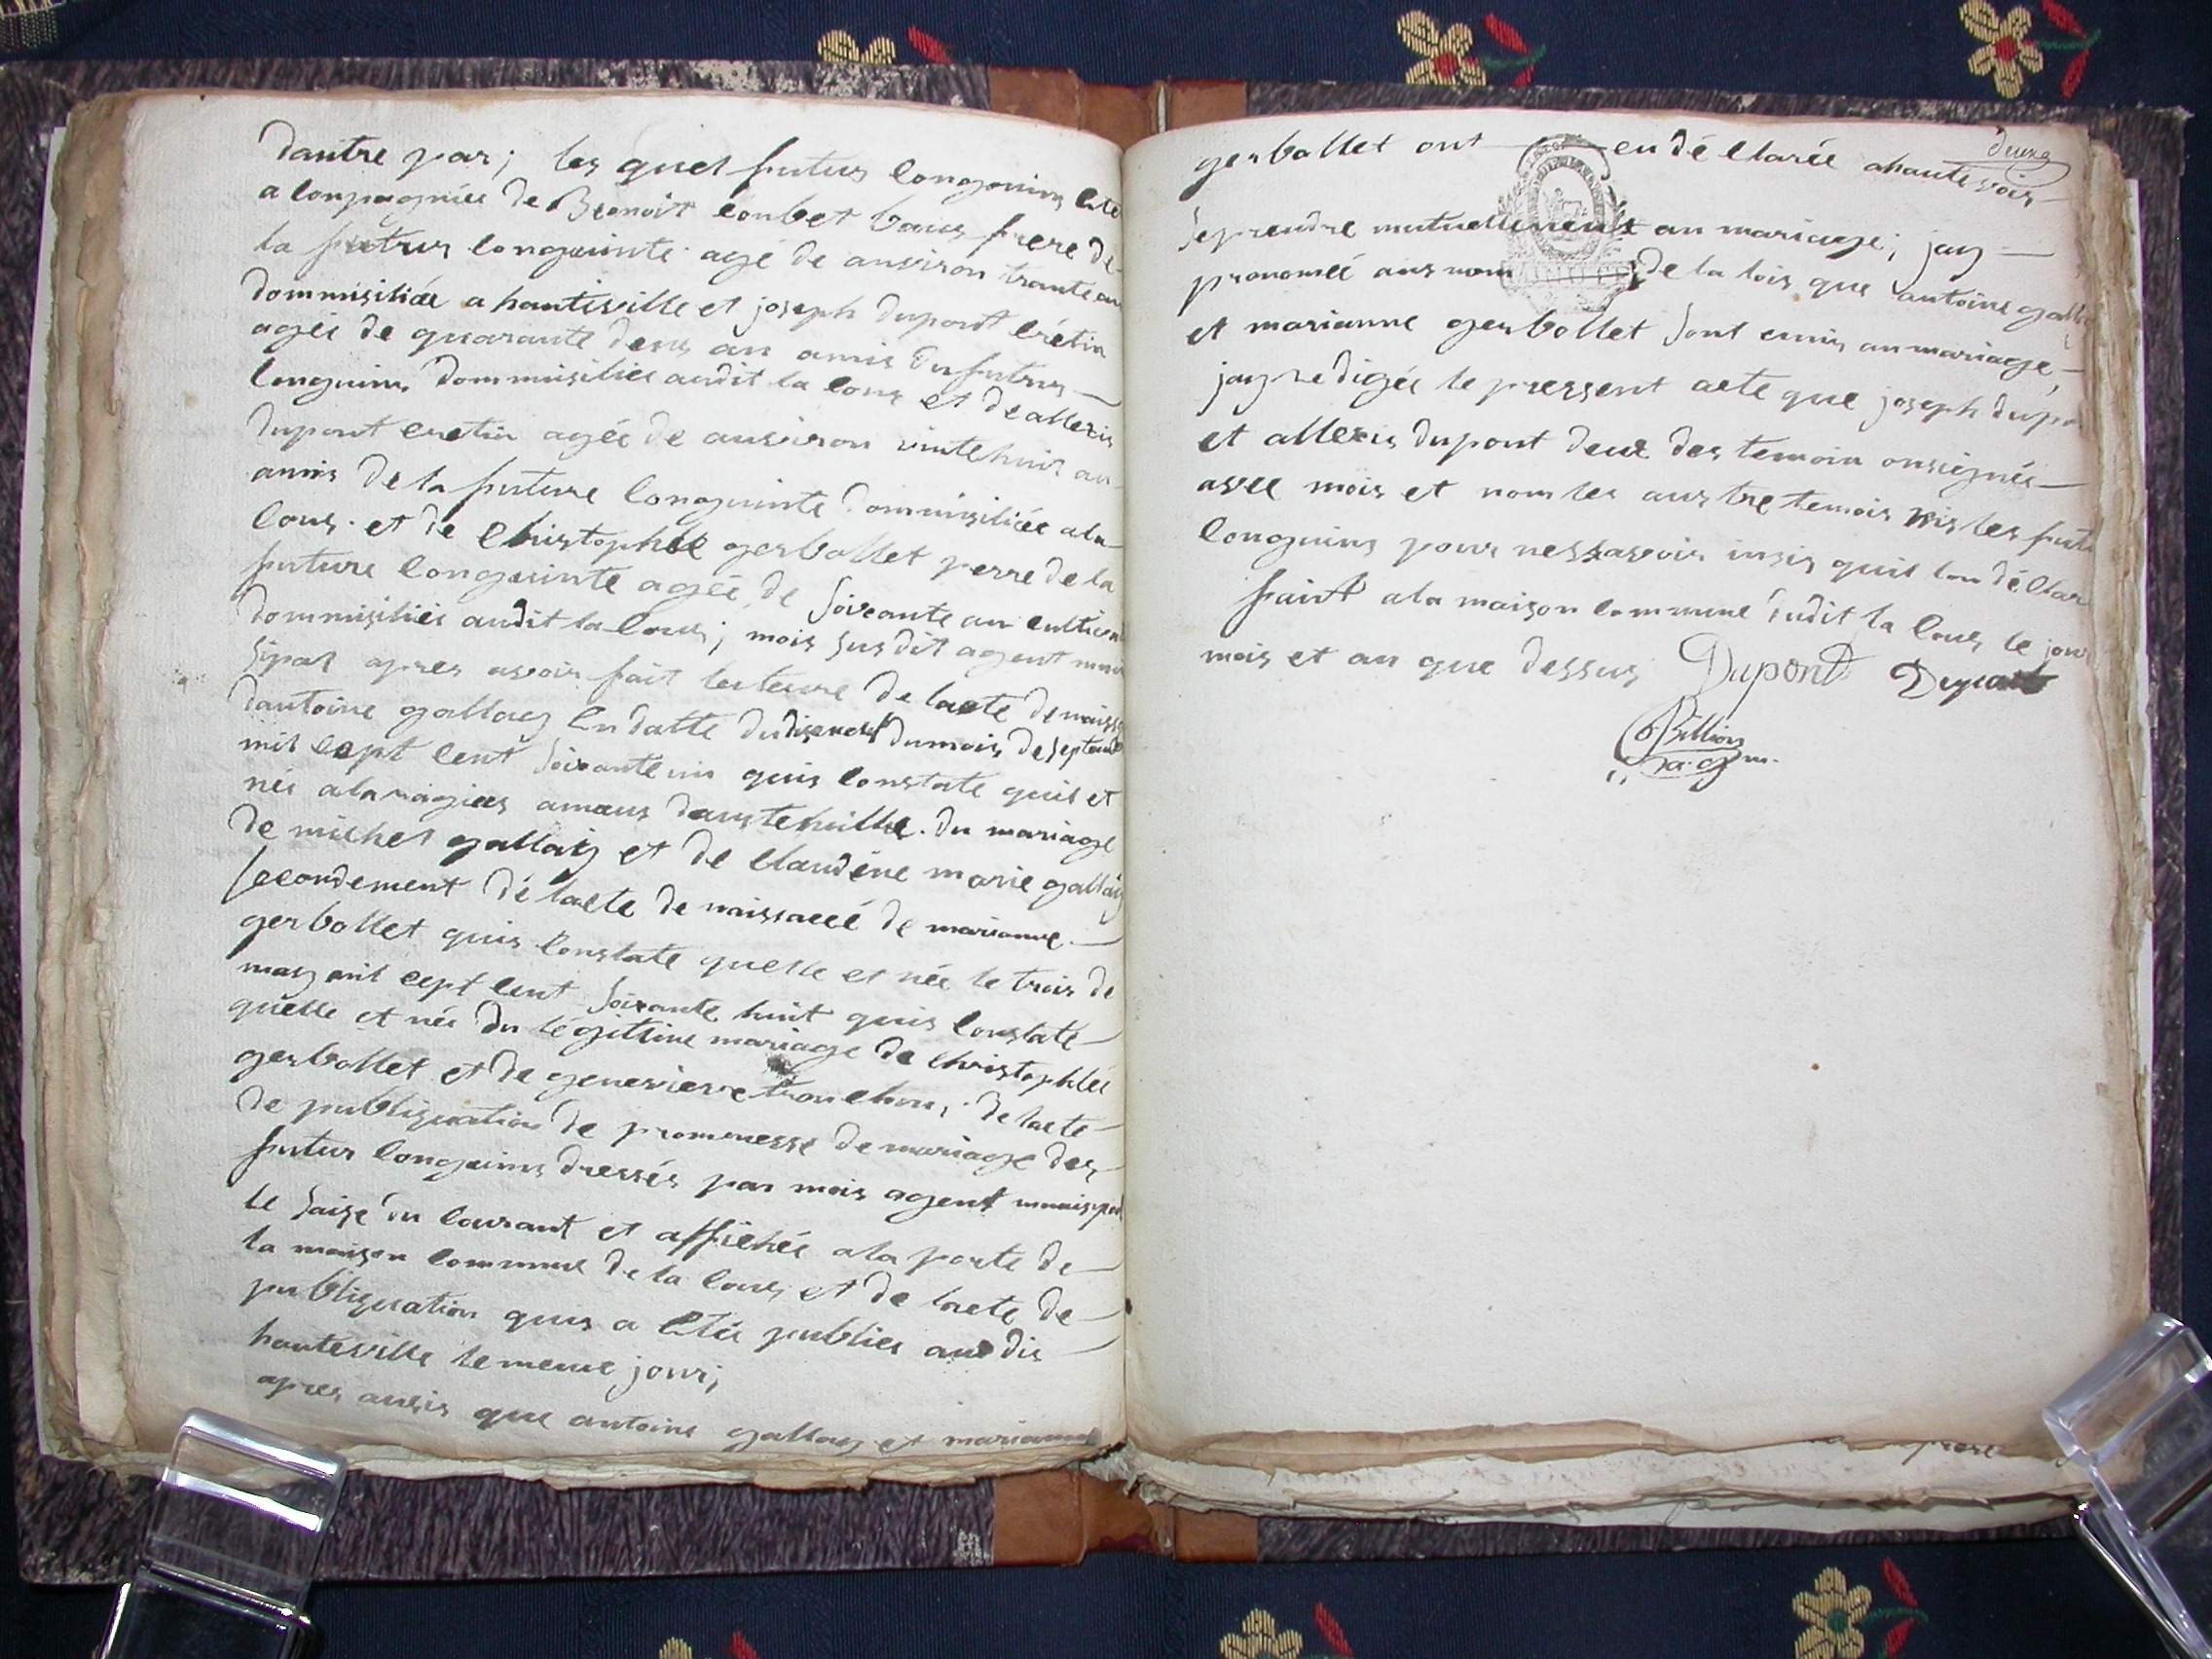 dautre par; les quel futurs conguins
a conpagniée de Benoit conbet baus frere de
la futrus conguinte agé de anviron trante an
dommisiliée a hauteville et joseph dupont crétin
agée de quarante deus an amis du futrus
conguins dommisiliés audit la cous et de allexis
dupont cretin agée de anviron vinte huit an
amis de la future conguinte dommisiliée a la
cous et de christophle gerbollet perre de la
future conguinte agée de soixante an
dommisiliés audit la cous; mois susdit agent muni
sipal apres avoir fait lecteure de lacte de naiss
dantoine gallay en datte du diseneuf du mois de septembre
mil cept cent soixante un quis constate quil et
née a la ragias amaus daustehville du mariage
de michel gallay et de claudine marie gallay
secondement de lacte de naissaccé de marianne
gerbollet quis constate quelle et née le trois de
may mil cept cent soixante huit quis constate
quelle et née du légittime mariage de christophlée
gerbollet et de genevieve tronchon; de lacte
de publiquation de prommesse de mariage des
futur conguins dressés par mois agent
le saise du courant et affichée a la porte de
la maison commune de la cous et de lacte de
publiquation quis a etée publiée au dis
hauteville le meme jour;
apres ausis que antoine gallay et marianne
deuze
gerbollet ont eu déclarée a haute voix
se prendre mutuellement an mariage; jay
pronomcé aus nom de la lois que antoine gall
et marianne gerbollet sont eunis an mariage,
jay redigée le pressent acte que joseph dupo
et allexis dupont deux des temoin on signés
avec mois et nom les austre temois nis les futu
conguins pour nes savoir insis quil lon déclar
fait a la maison commune sudit la cous le jour
mois et an que dessus Dupont Dupont
Billion
a. g. m.